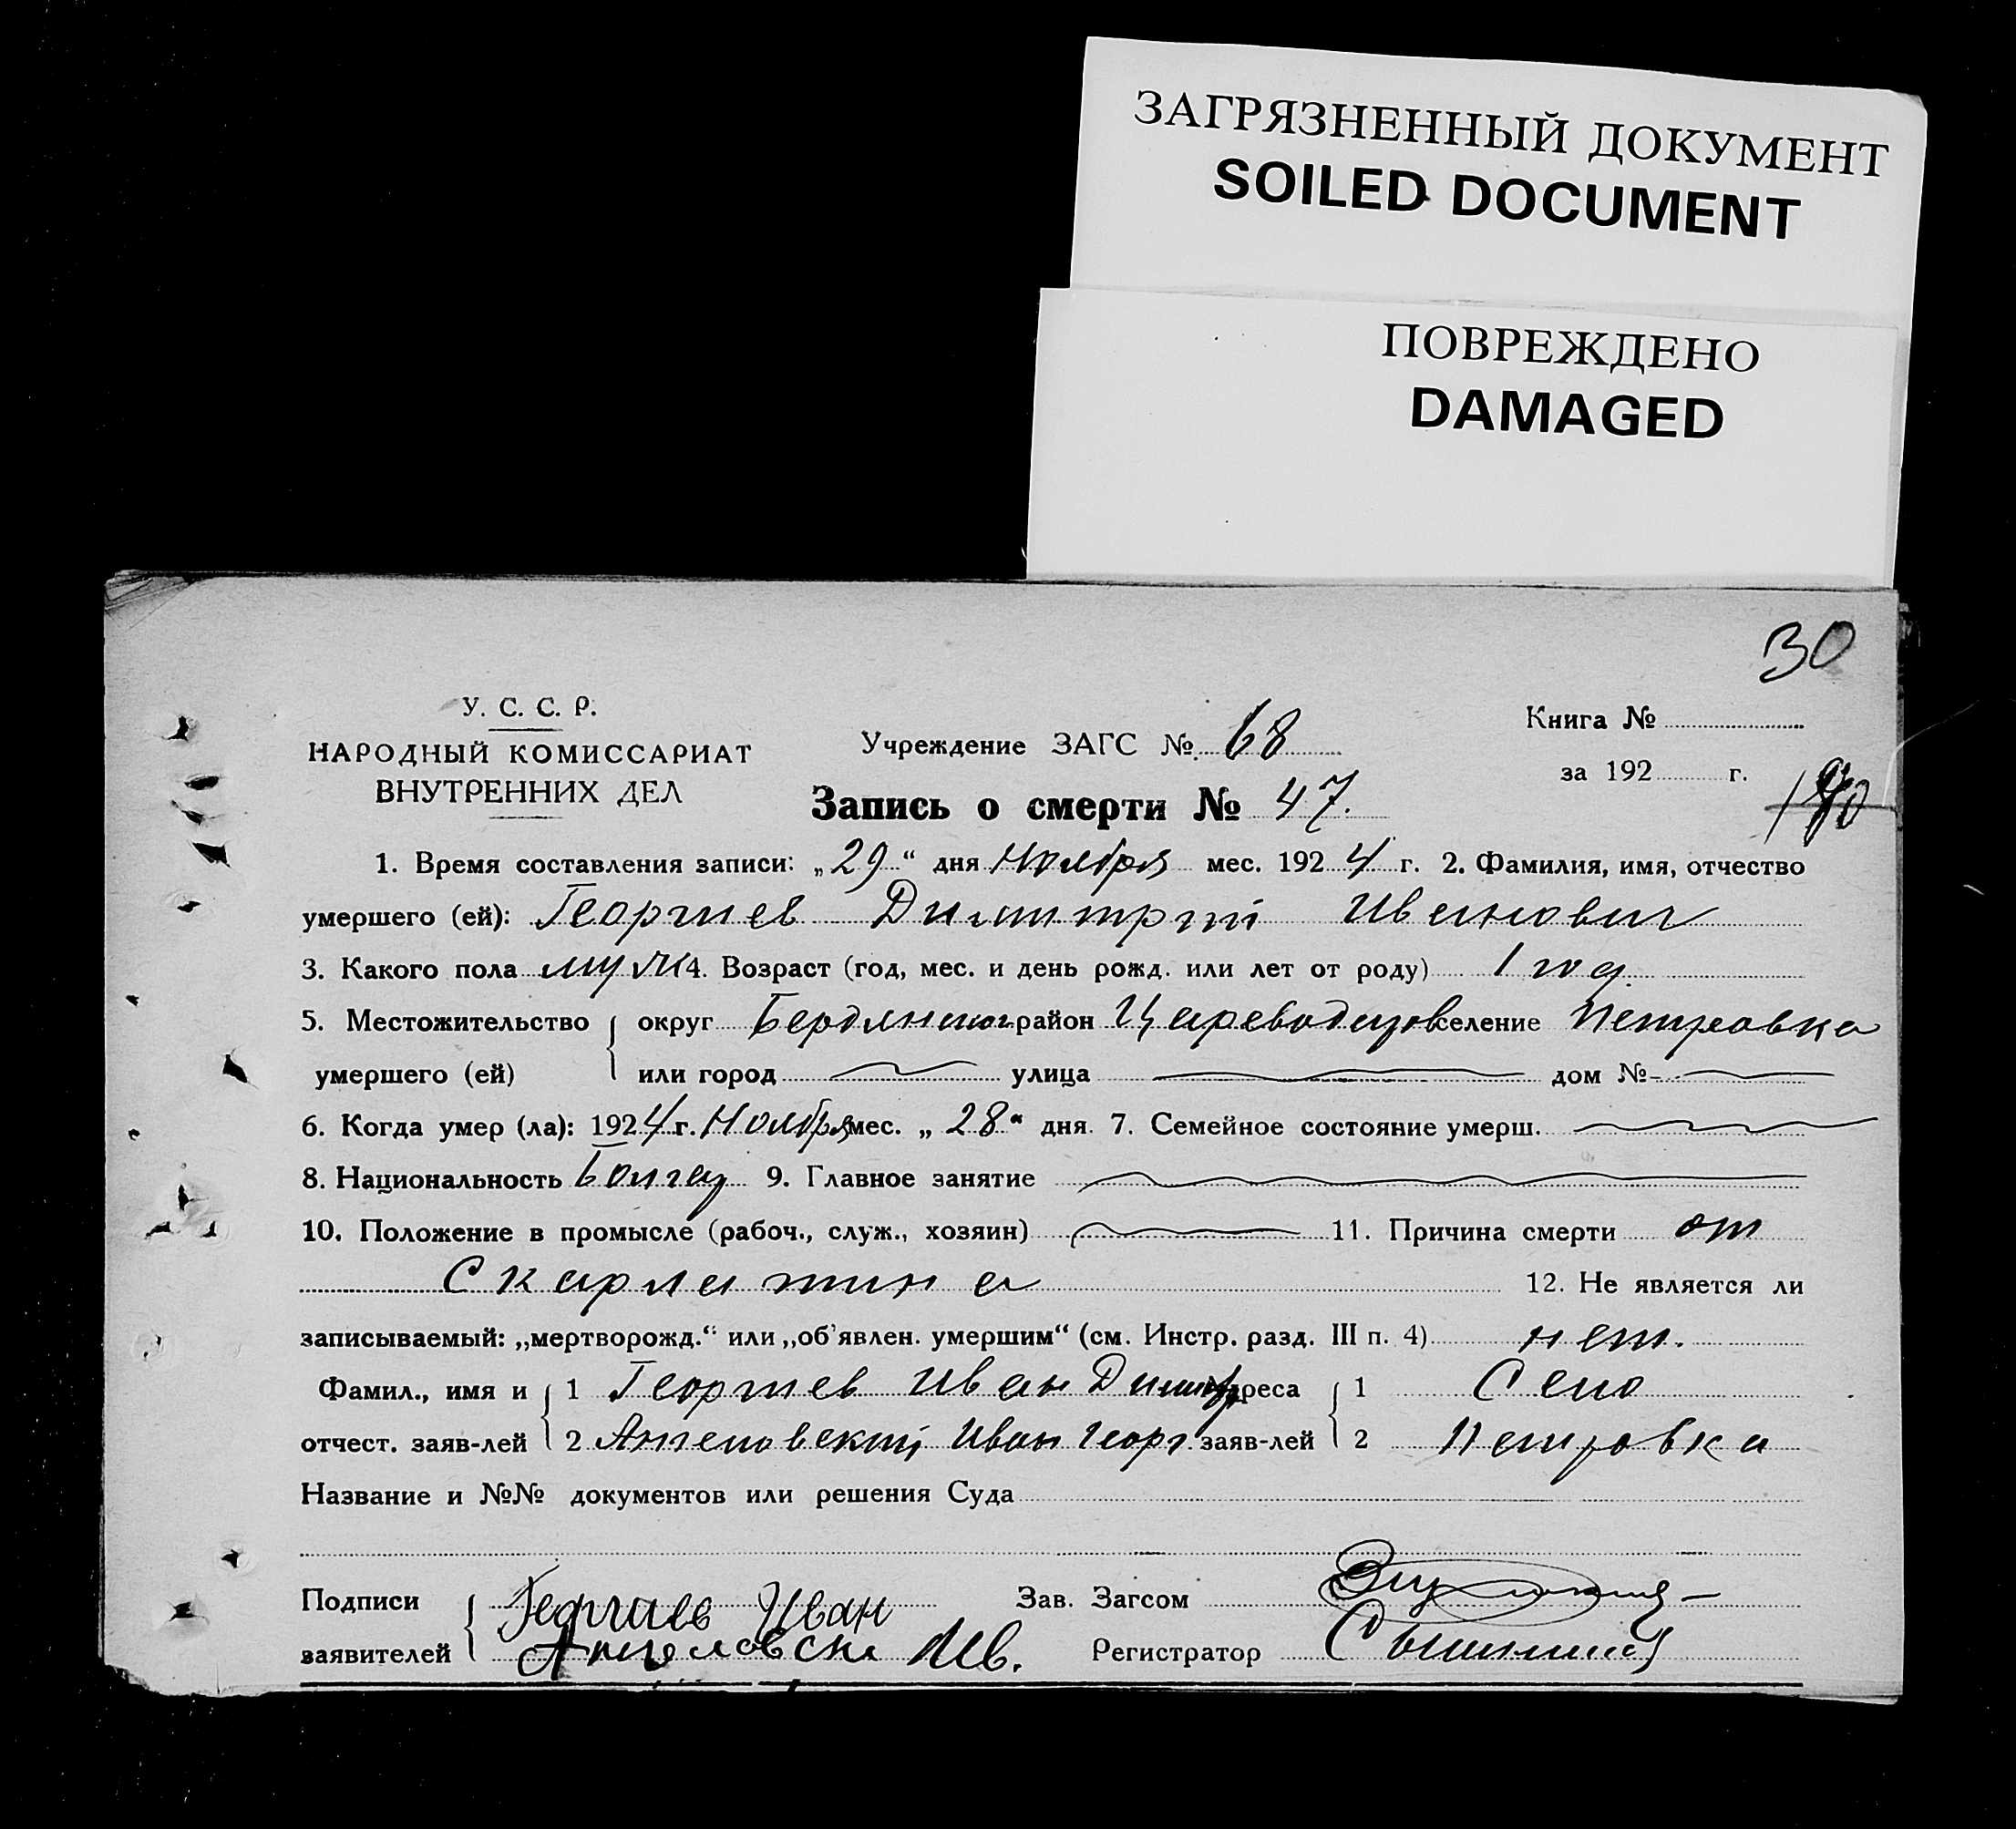 ЗАГРЯЗНЕННЫЙ ДОКУМЕНТ
SOILED DOCUMENT
ПОВРЕЖДЕНО
DAMAGED
30
У. С. С. Р.
НАРОДНЫЙ КОМИССАРИАТ
ВНУТРЕННИХ ДЕЛ
Учреждение ЗАГС № 68
Книга №
за 192 г.
Запись о смерти № 47.
1. Время составления записи: „29“ дня Ноября мес. 1924 г. 2. Фамилия, имя, отчество
умершего (ей): Георгиев Димитрий Иванович
3. Какого пола муж 4. Возраст (год, мес. и день рожд. или лет от роду) 1 год.
5. Местожительство округ Бердянског район Цареводаров селение Петровка
умершего (ей) или город улица дом №
6. Когда умер (ла): 1924 г. Ноября мес. „28“ дня. 7. Семейное состояние умерш.
8. Национальность Болгар 9. Главное занятие
10. Положение в промысле (рабоч., служ., хозяин) 11. Причина смерти от
Скарлатина 12. Не является ли
записываемый: „мертворожд.“ или „об'явлен. умершим“ (см. Инстр. разд. III п. 4) нет.
Фамил., имя и 1 Георгиев Иван Димитр Адреса 1 Село
отчест. заяв-лей 2 Ангеловский Иван Георг. заяв-лей 2 Петровка
Название и №№ документов или решения Суда
Подписи Георгиев Иван Зав. Загсом
заявителей Ангеловски Ив. Регистратор